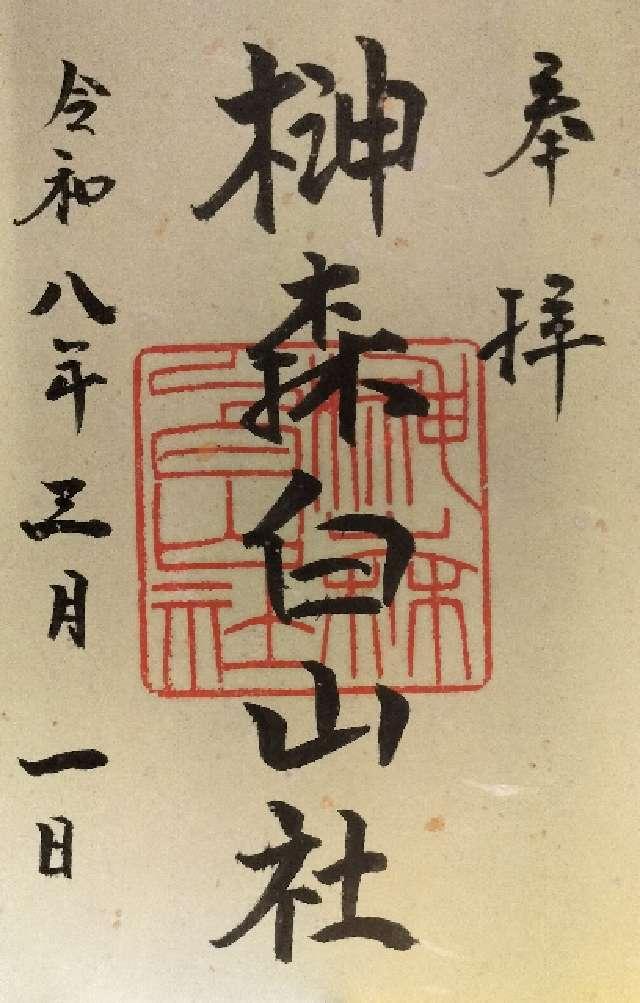 奉拝
榊森白山社
令和八年三月一日